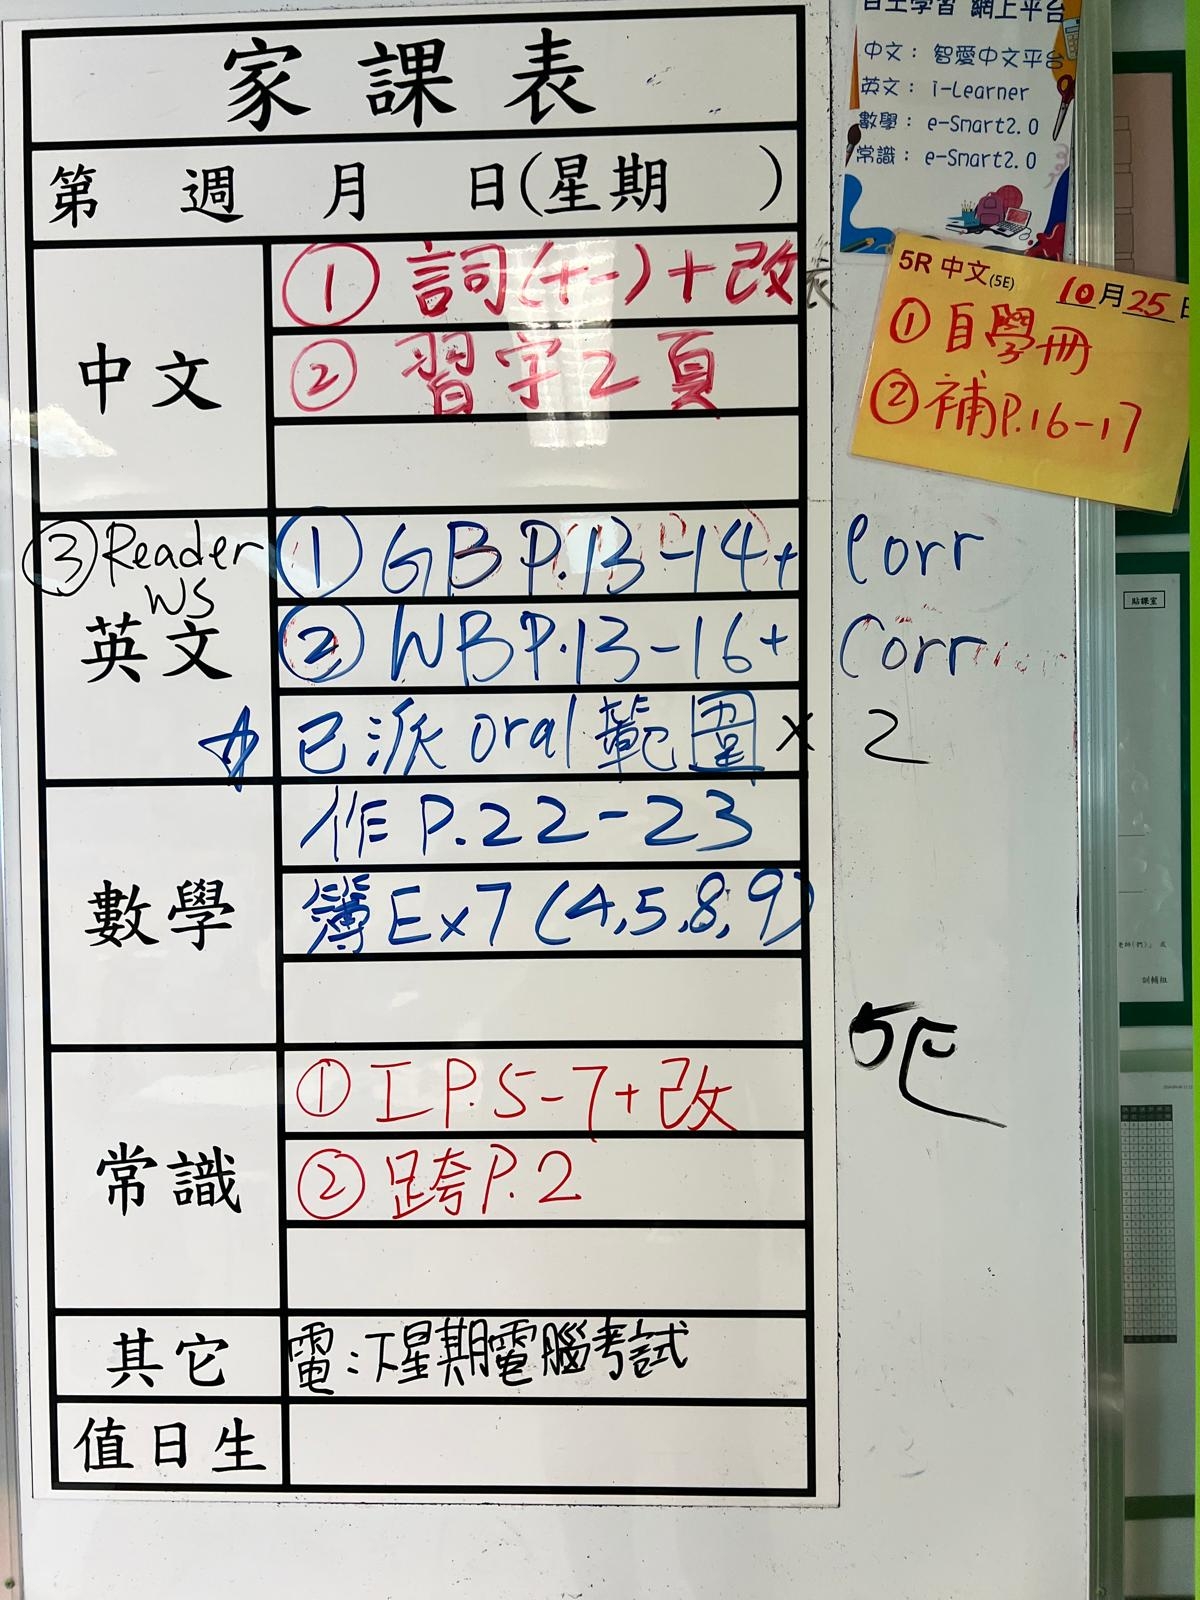 家課表
第 週 月 日(星期 )
中文
① 詞(十一)+改
② 習字2頁
英文
③ Reader WS
① GB P.13-14+ Corr
② WB P.13-16+ Corr
☆ 已派 oral 範圍 × 2
數學
作 P.22-23
簿 Ex7 (4,5,8,9)
常識
① I P.5-7+改
② 跨P.2
其它
電:下星期電腦考試
值日生
5E
自主學習 網上平台
中文: 智愛中文平台
英文: i-Learner
數學: e-Smart2.0
常識: e-Smart2.0
5R 中文(5E) 10月25日
① 自學冊
② 補P.16-17
貼課室
訓輔組